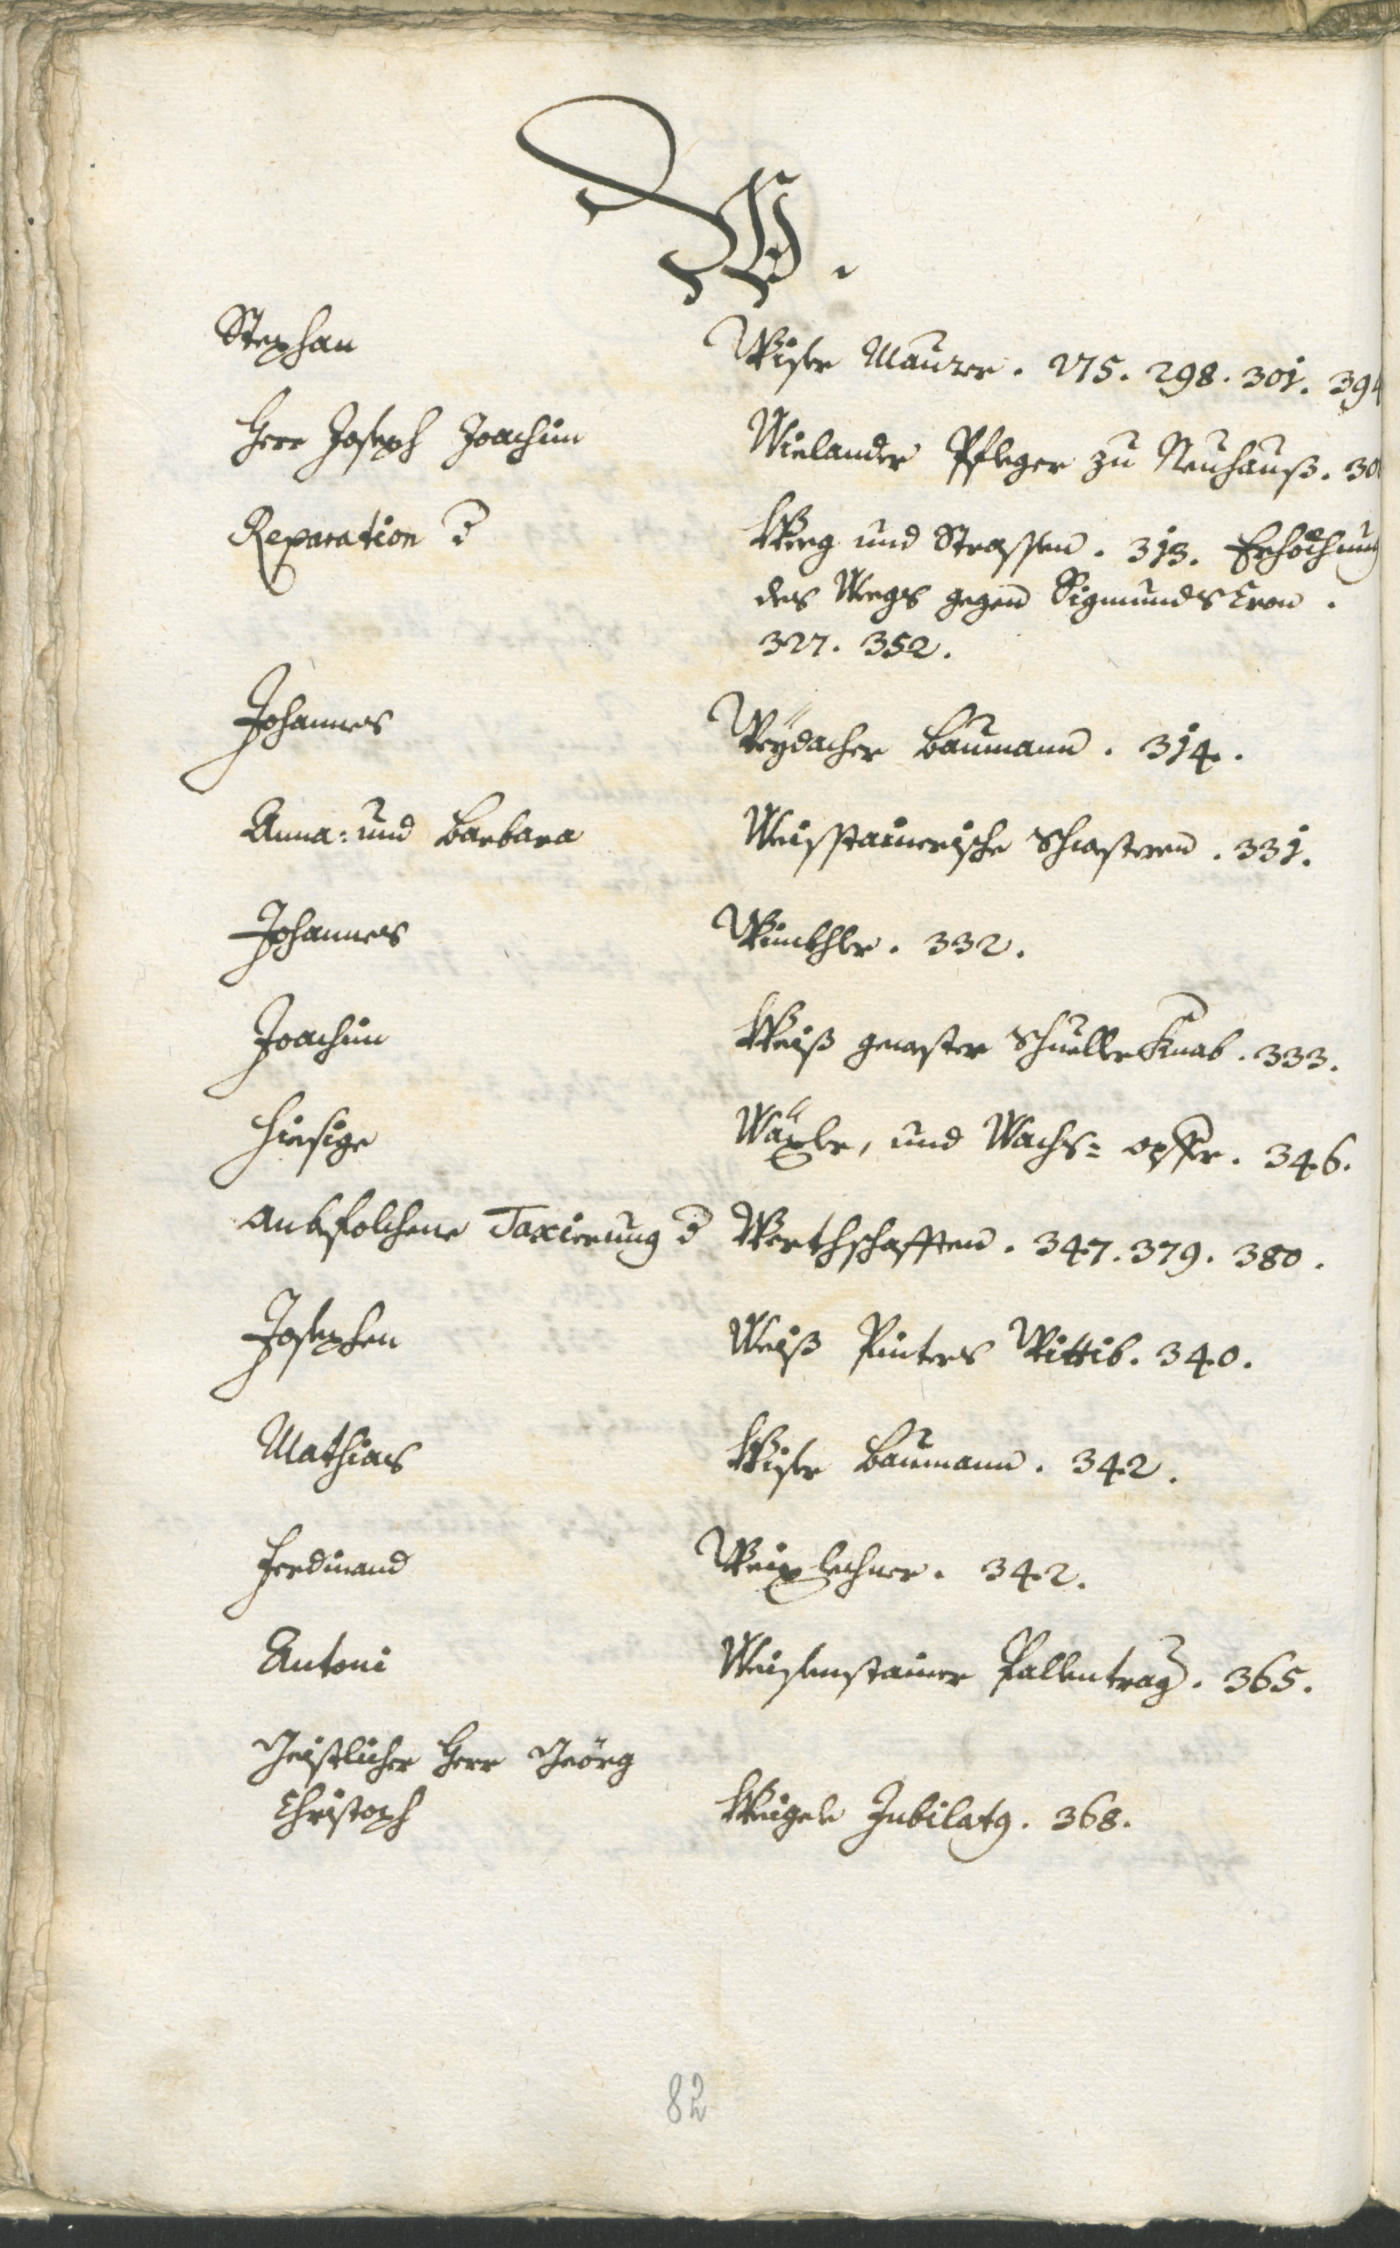 W.
Stephan Wiser Maurer. 275. 298. 301. 394
Herr Joseph Joachim Wielander Pfleger zu Neuhauß. 30
Reparation d Weeg und Strassen. 313. Erhöchnung
des Weegs gegen Sigmundscron.
327. 352.
Johannes Weÿdacher Baumann. 314.
Anna: und Barbara Weisstainerische Schwestern. 331.
Johannes Winkhler. 332.
Joachim Weiß gewester Schuellerknab. 333.
Hiesige Wäxler, und Wachs= opfer. 346.
Anbefolchene Taxierung d Werthschafften. 347. 379. 380.
Josephen Weiß Pinters Wittib. 340.
Mathias Wiser Baumann. 342.
Ferdinand Weixlechner. 342.
Antoni Weisenstainer Pallentrag. 365.
Geistlicher Herr Geörg
Christoph Weigele Jubilatg. 368.
82